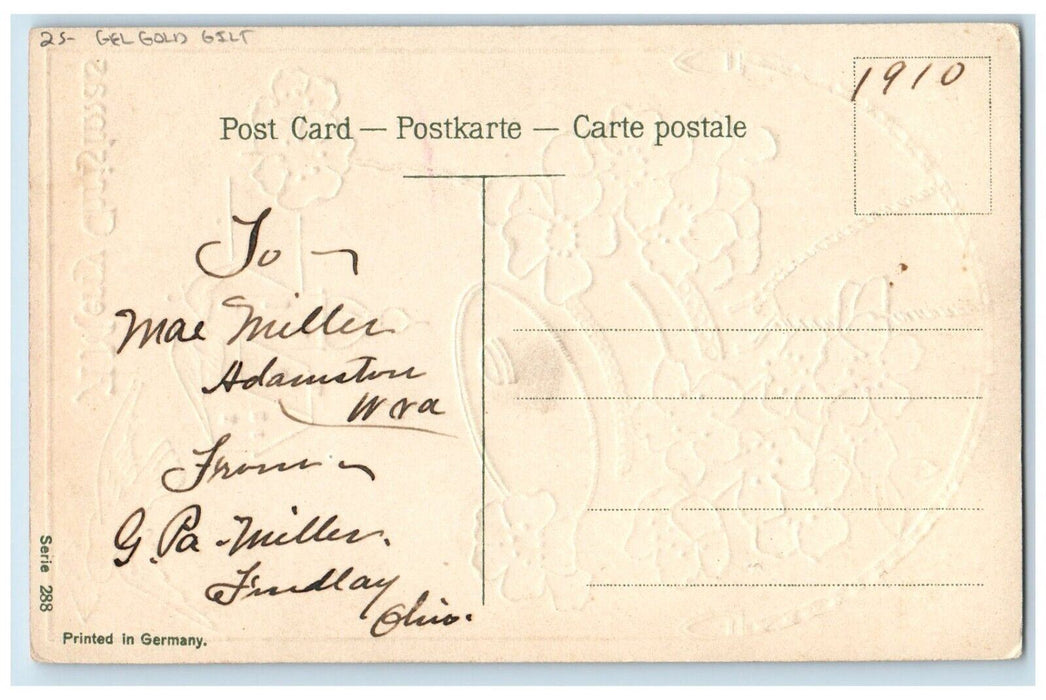 25- GEL GOLD GILT
1910
Post Card — Postkarte — Carte postale
To —
Mae Miller
Adamston
W va
From —
G. Pa. Miller.
Findlay
Ohio.
Serie 288
Printed in Germany.